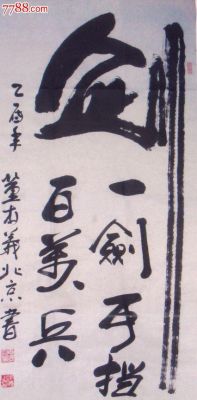 7788.com
剑
一劍可挡
百萬兵
乙酉年
董 北京書